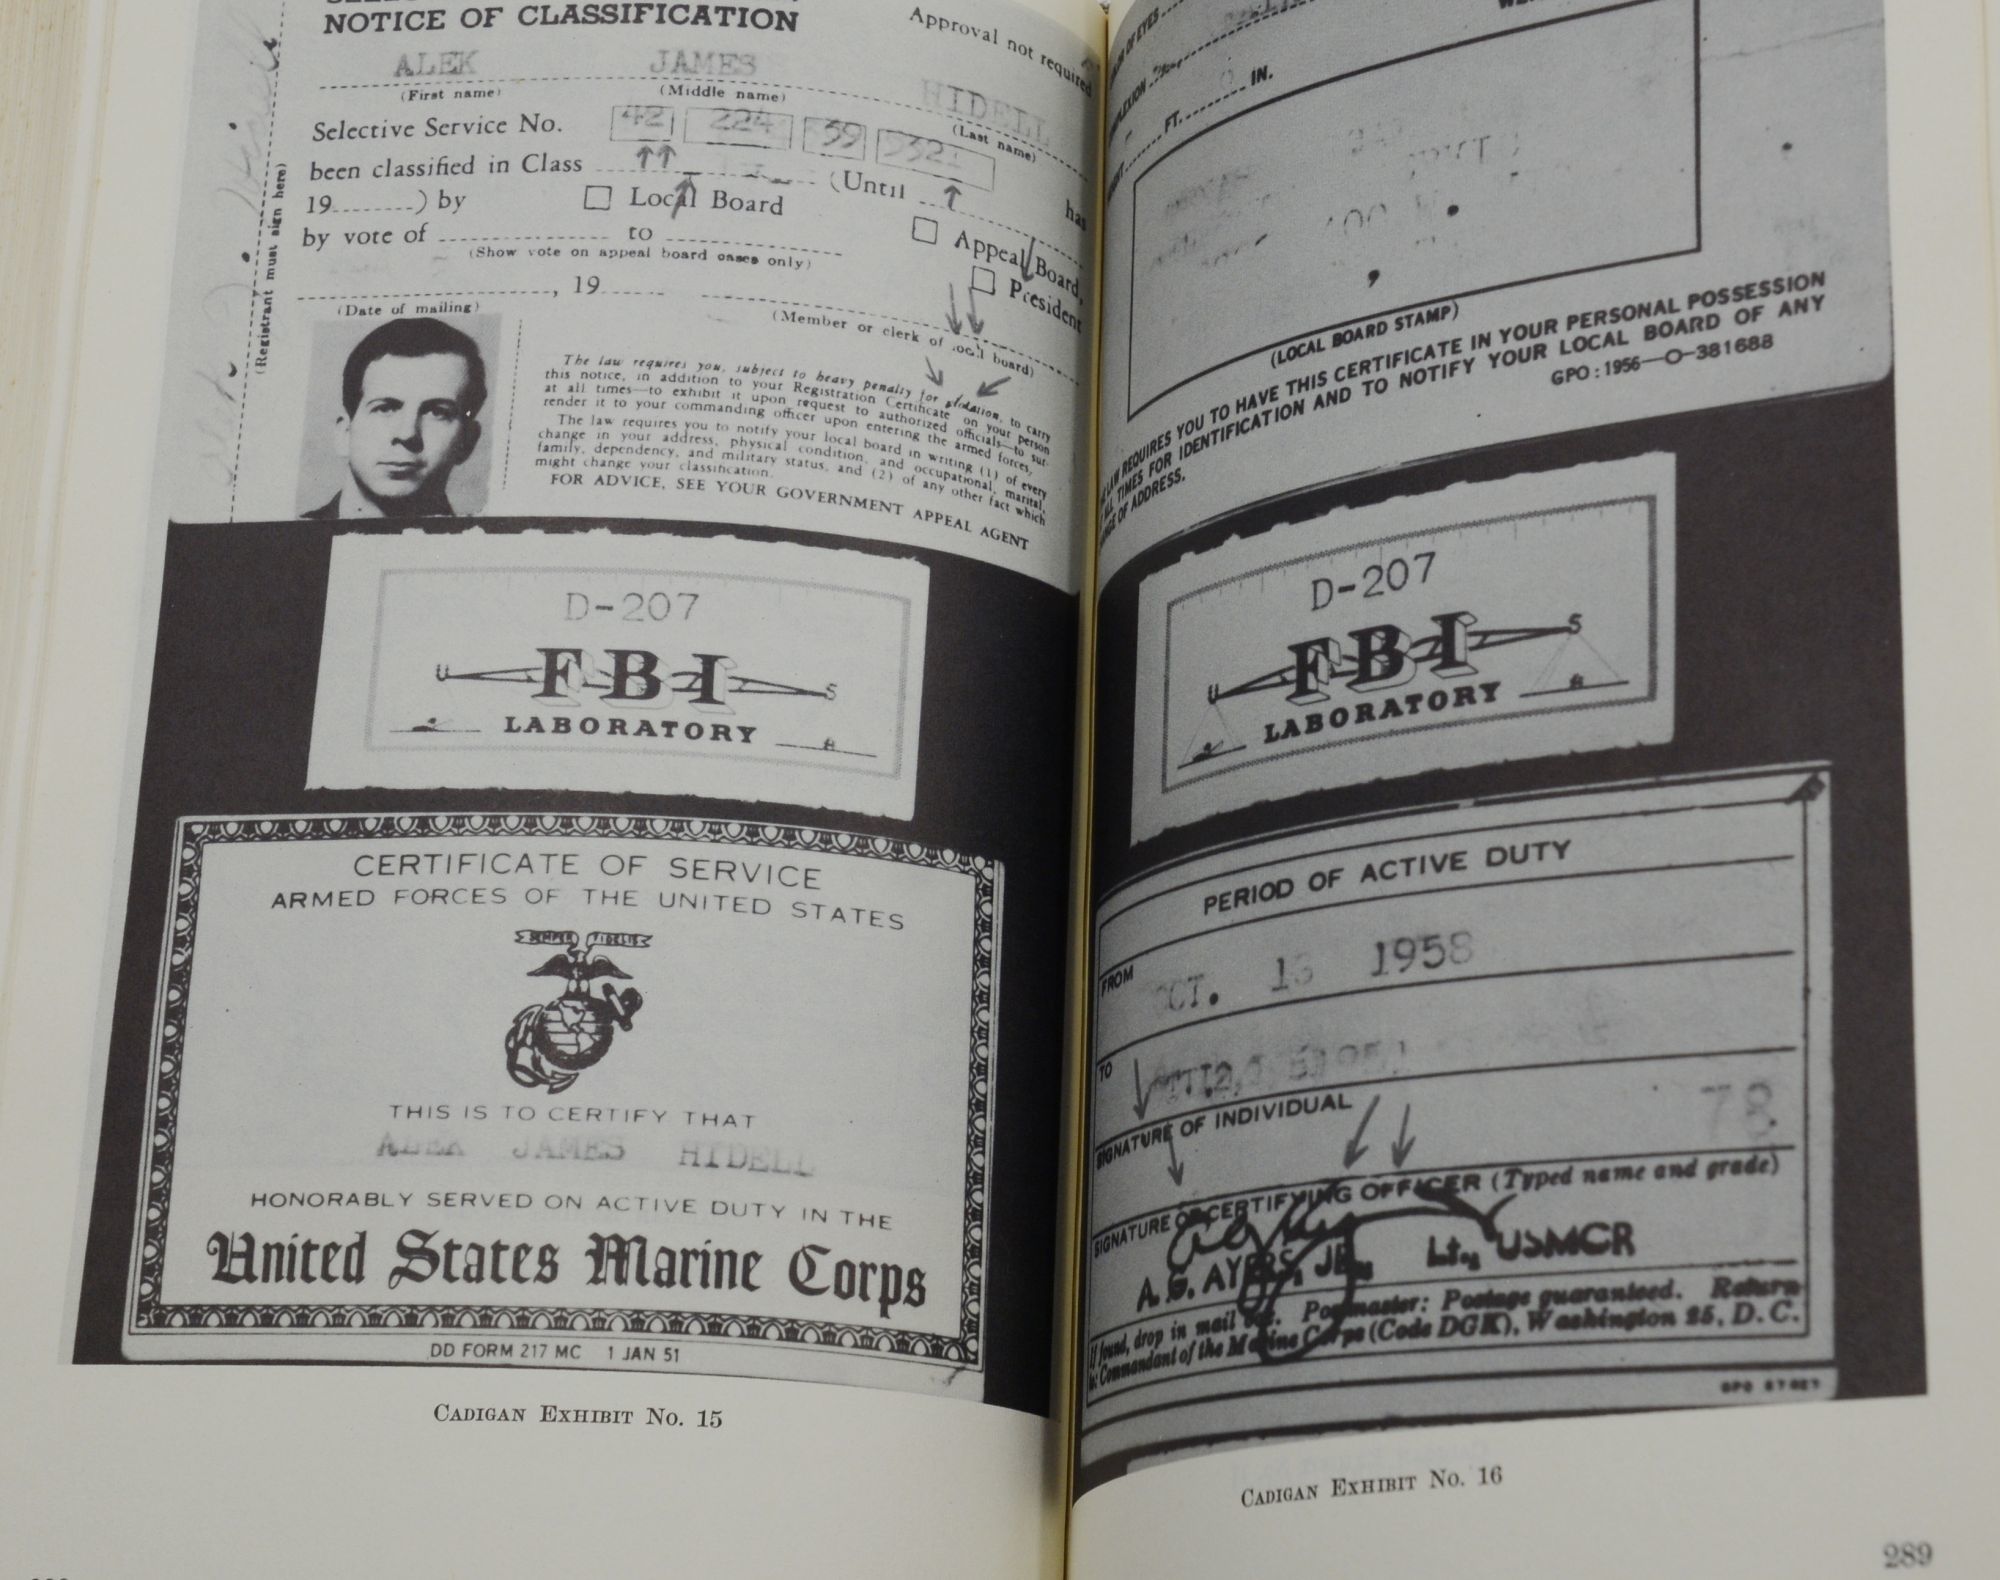 NOTICE OF CLASSIFICATION
Approval not required
ALEK JAMES HIDELL
(First name) (Middle name) (Last name)
Selective Service No. 42 224 39 5321 has
been classified in Class (Until
19 ) by Local Board Appeal Board,
by vote of to President
(Show vote on appeal board cases only)
, 19
(Date of mailing) (Member or clerk of local board)
(Registrant must sign here)
The law requires you, subject to heavy penalty for violation, to carry
this notice, in addition to your Registration Certificate on your person
at all times—to exhibit it upon request to authorized officials—to sur-
render it to your commanding officer upon entering the armed forces.
The law requires you to notify your local board in writing (1) of every
change in your address, physical condition, and occupational, marital,
family, dependency, and military status, and (2) of any other fact which
might change your classification.
FOR ADVICE, SEE YOUR GOVERNMENT APPEAL AGENT
D-207
U FBI S
LABORATORY
CERTIFICATE OF SERVICE
ARMED FORCES OF THE UNITED STATES
SEMPER FIDELIS
THIS IS TO CERTIFY THAT
ALEK JAMES HIDELL
HONORABLY SERVED ON ACTIVE DUTY IN THE
United States Marine Corps
DD FORM 217 MC 1 JAN 51
CADIGAN EXHIBIT No. 15
OF EYES
FT. IN.
(LOCAL BOARD STAMP)
LAW REQUIRES YOU TO HAVE THIS CERTIFICATE IN YOUR PERSONAL POSSESSION
ALL TIMES FOR IDENTIFICATION AND TO NOTIFY YOUR LOCAL BOARD OF ANY
OF ADDRESS.
GPO : 1956—O-381688
D-207
U FBI S
LABORATORY
PERIOD OF ACTIVE DUTY
FROM
OCT. 13 1958
TO
SIGNATURE OF INDIVIDUAL
78
SIGNATURE OF CERTIFYING OFFICER (Typed name and grade)
A. G. AYERS, JR. Lt., USMCR
If found, drop in mail box. Postmaster: Postage guaranteed. Return
to: Commandant of the Marine Corps (Code DGK), Washington 25, D. C.
CADIGAN EXHIBIT No. 16
289